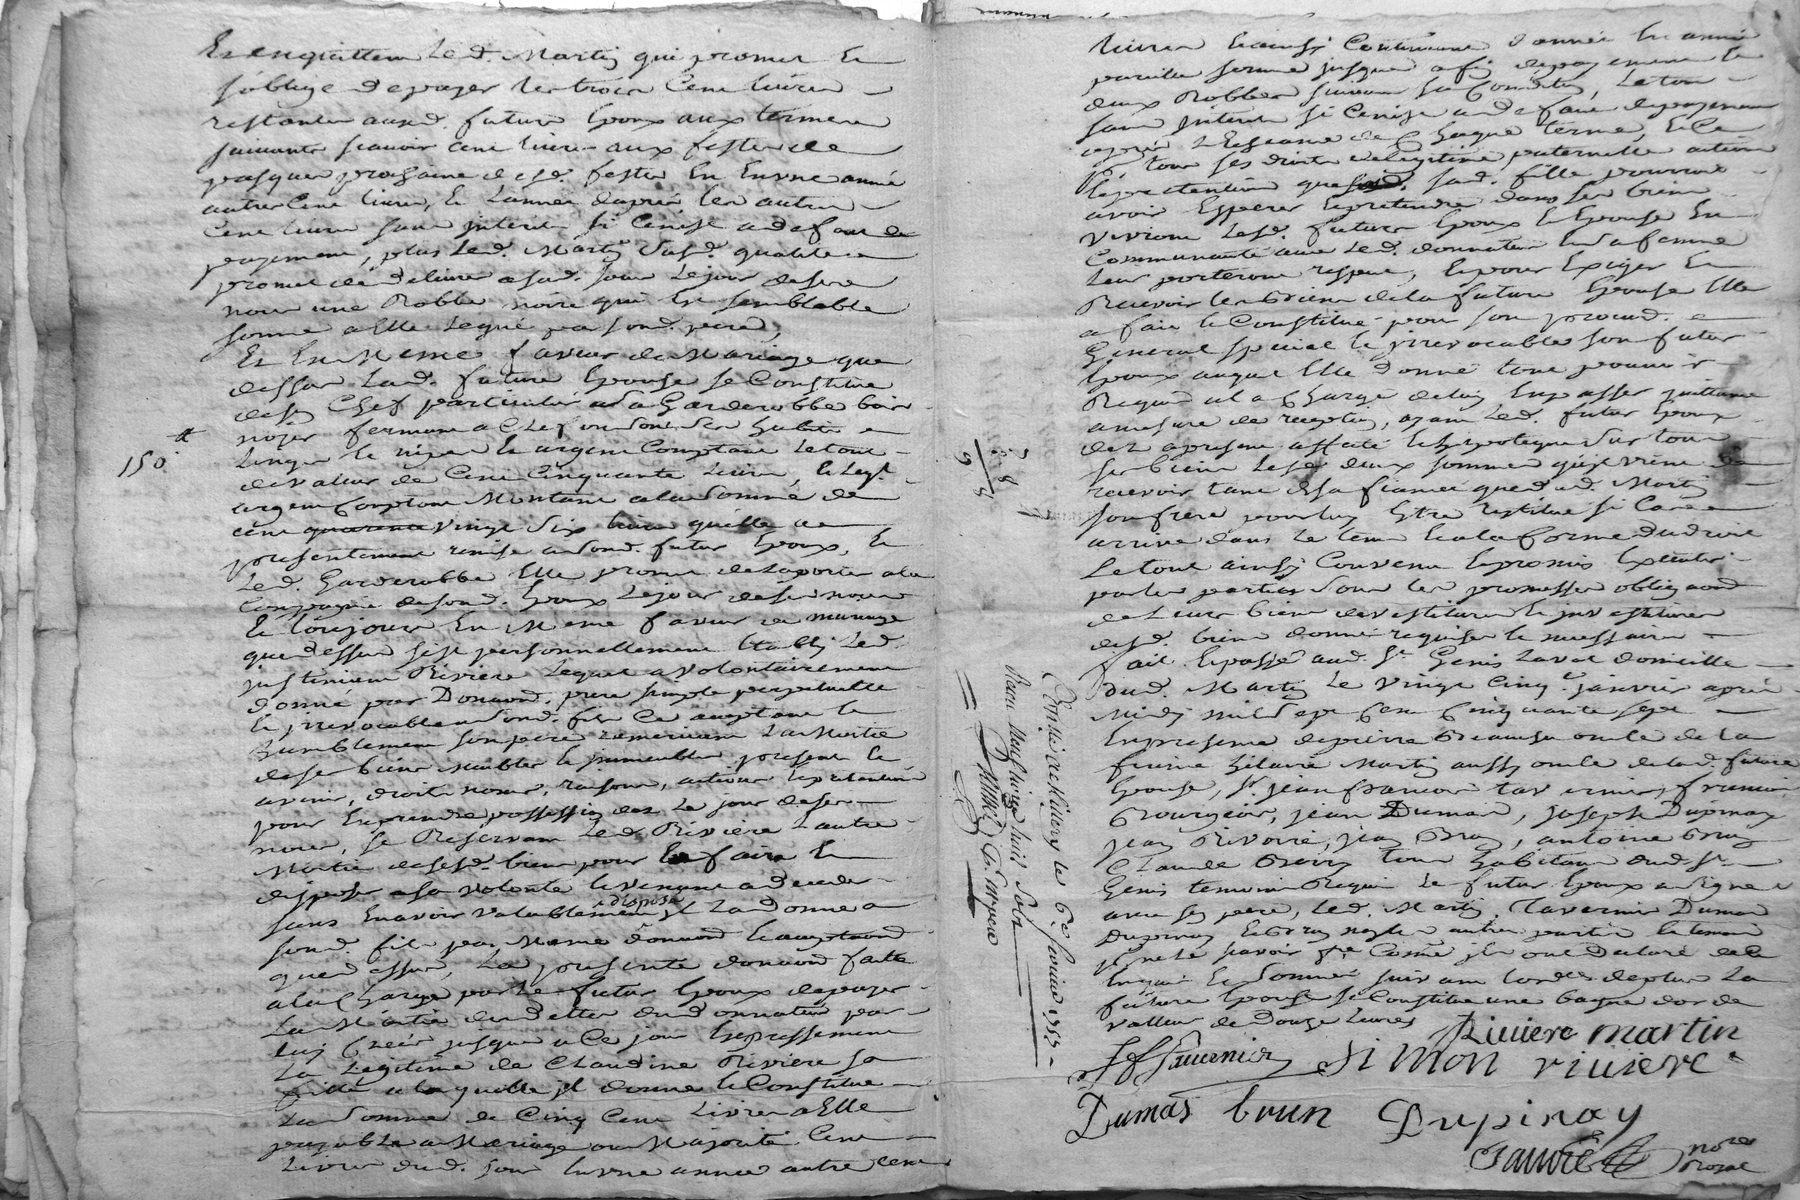 Et en quitten Led. Martin qui promet Et
soblige de payer les trois Cent livres
restantes auxd. futurs Epoux aux termes
suivants scavoir cent livres aux festes de
pasques prochaine desd. festes En Une année
autres Cent livres, Et Lannée dapres les autres
Cent livres sans interets si Cenest a defaut de
payement, plus Led. Martin Susd. qualité
promet de delivrer a sad. soeur Le jour de ses
noces une Robbe noire qui Est semblable
somme a Elle Legué par sond. pere
Et En Meme faveur de Mariage que
dessus Lad. future Epouse se Constitue
de son Chef particulier a Sa Garderobbe bois
noyer fermant a Clef ou sont ses habits
Linges Et nipes Et argent Comptant Le tout
de valeur de Cent Cinquante Livres, Et Led.
argent Comptant Montant a la Somme de
cent quarante vingt Six livres quelle a
presentement remise a Sond. futur Epoux, Et
Led. Garderobbe Elle promet de Laporter a la
Compagnie de sond. Epoux Le jour de ses noces
150
Et toujours En Meme faveur de mariage
que dessus sest personnellement Etably Led.
Justinien Riviere Lequel a volontairement
donné par Donaond. pure simple perpetuelle
Et irrevocable a Sond. fils Ce acceptant Et
humblement son pere remerciant La Moitié
de ses biens Meubles Et immeubles present Et
avenir, droits noms, raisons, actions Et pretentions
pour En prendre possession des Le jour de ses
noces, se Reservant Led. Riviere Lautre
Moitié de sesd. biens pour En faire Et
disposer a sa volonté Et venant a deceder
sans En avoir valablement disposé il La donne a
sond. fils par Meme donaond Et acceptaond
que dessus, La presente donaond faitte
a la Charge par Le futur Epoux de payer
La Moitié des dettes dud donnateur par
luy Créés jusques a Ce jour Expressement
La Legitime de Claudine Riviere sa
fille a laquelle il donne Et Constitue
La Somme de Cinq Cent Livres a Elle
payable a Mariage ou Majorité Cent
Livres dud. jour En une année autre cent
Controlé a Millery le 6e fevrier 1757
Recu
livres Et ainsy Continuant dannée En année
pareille somme jusques a fin de payement Et
deux Robbes suivant sa Condition, Le tout
sans interets si Cenest a defaut de payement
apres Lecheance de Chaque terme, Et Ce
p. tous ses droits de Legitime paternelle actions
Et pretentions que sad. fille pourroit
avoir Esperer Et pretendre dans ses biens
Vivront Lesd. futurs Epoux Et Epouse En
Communauté avec Led. donnateur Et Sa femme
Leur porteront respect, Et pour Exiger Et
Recevoir les biens de la future Epouse Elle
a fait Et Constitue pour son procur.
General special Et irrevocable son futur
Epoux auquel Elle donne tout pouvoir
Requis a la Charge de luy En passer quittance
a mesure de reception, ayant Led. futur Epoux
des apresent affecté Et hypotequé Sur tous
ses biens Lesd. deux sommes quil vient de
recevoir tant de sa fiancée que dud. Martin
son frere pour luy Etre restitué si Cas
arrive dans Le tems Et a la forme du droit
Le tout ainsy Convenu Et promis Executer
par les parties Sous les promesses obligaond
de Leurs biens devestitures Et investitures
desd. biens donnés requises Et necessaires
Fait Et passé aud. St. Genis Laval domicille
dud. Martin Le vingt Cinq janvier apres
Midy mil Sept Cent Cinquante Sept
En presence de pierre oncle de la
future hilaire Martin aussy oncle de lad. future
Epouse, Sr. jean francois tavernier,
Bourgeois, jean Dumas, joseph Dupinay
jean Rivoire, jean Brun, antoine brun
Claude tous habitants dud. St.
Genis temoins Requis Le futur Epoux a Signé
avec son pere, Led. Martin, Tavernier Dumas
Dupinay Et brun non les autres parties Et temoins
p. ne Le scavoir Comme ils ont declaré de Ce
Enquis Et Sommés suivant Lordce de plus La
future Epouse se Constitue une bague dor de
valleur de Douze Livres
Riviere martin
Jf Tavernier Simon riviere
Dumas brun Dupinay
nores
Royal